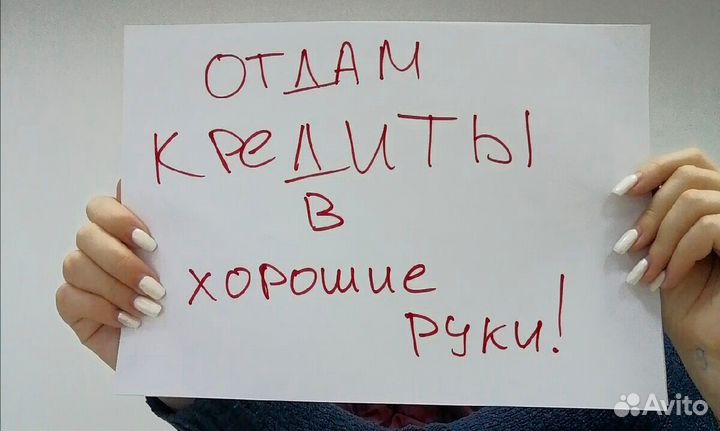 ОТДАМ
КРЕДИТЫ
В
ХОРОШИЕ
РУКИ!
Avito